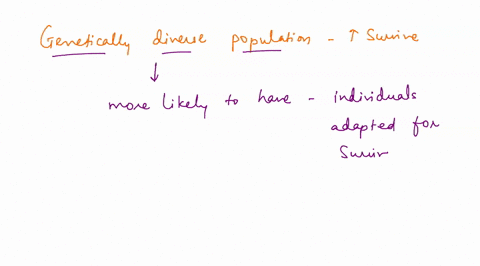 Genetically diverse population - ↑ Survive
↓
more likely to have - individuals
adapted for
Surviv